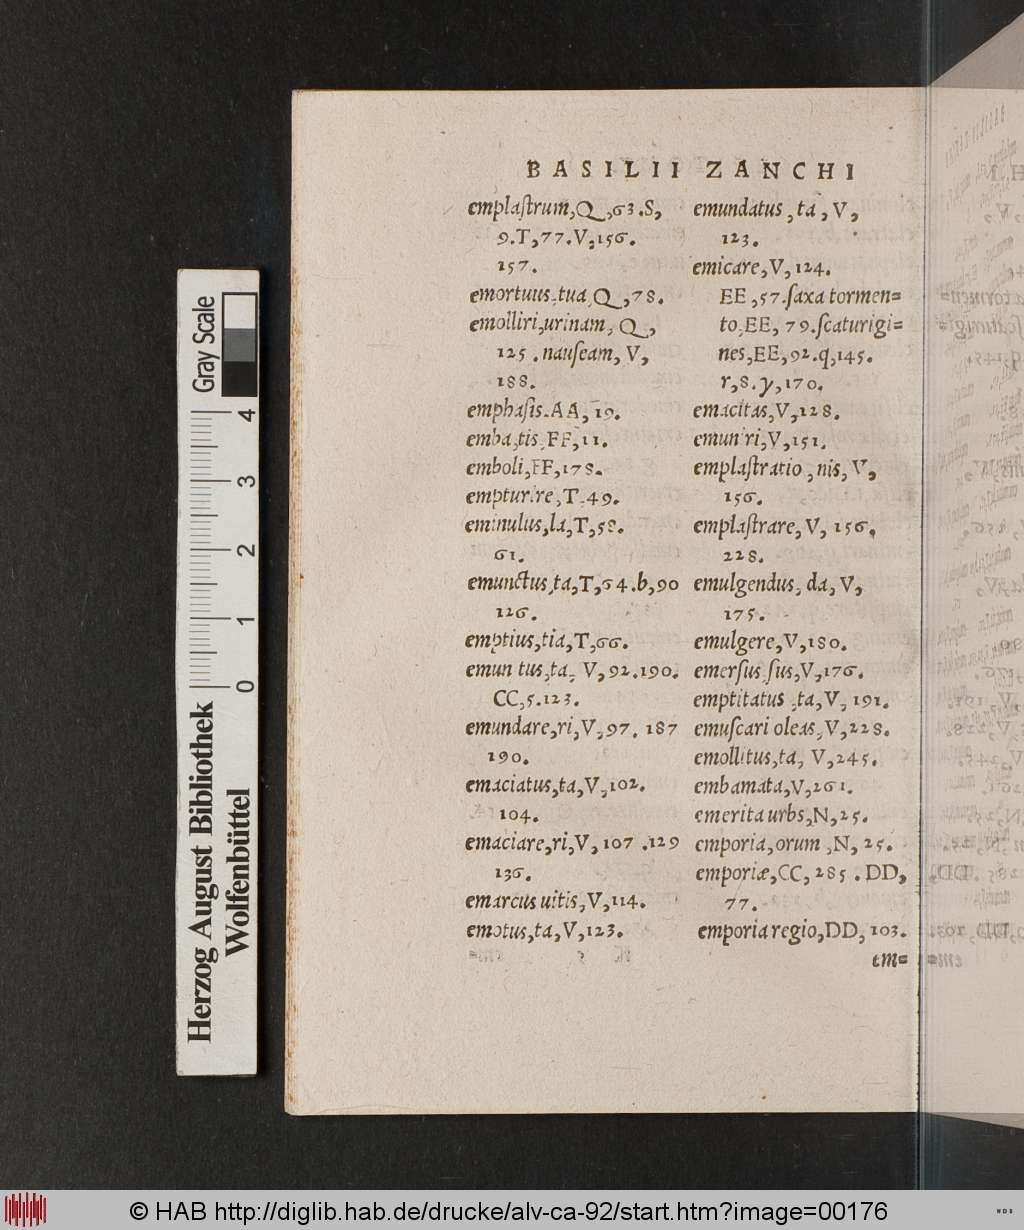 BASILII ZANCHI
emplaſtrum, Q, 63. S,
9. T, 77. V, 156.
157.
emortuus, tua, Q, 78.
emolliri, urinam, Q,
125. nauſeam, V,
188.
emphaſis. AA, 19.
emba, tis, FF, 11.
emboli, FF, 178.
empturire, T. 49.
eminulus, la, T, 58.
61.
emunctus, ta, T, 64. b, 90
126.
emptius, tia, T, 66.
emun tus, ta, V, 92. 190.
CC, 5. 123.
emundare, ri, V, 97. 187
190.
emaciatus, ta, V, 102.
104.
emaciare, ri, V, 107. 129
136.
emarcus uitis, V, 114.
emotus, ta, V, 123.
emundatus, ta, V,
123.
emicare, V, 124.
EE, 57. ſaxa tormen=
to, EE, 79. ſcaturigi=
nes, EE, 92. q, 145.
r, 8. y, 170.
emacitas, V, 128.
emuniri, V, 151.
emplaſtratio, nis, V,
156.
emplaſtrare, V, 156,
228.
emulgendus, da, V,
175.
emulgere, V, 180.
emerſus, ſus, V, 176.
emptitatus, ta, V, 191.
emuſcari oleas, V, 228.
emollitus, ta, V, 245.
embamata, V, 261.
emerita urbs, N, 25.
emporia, orum, N, 25.
emporiæ, CC, 285. DD,
77.
emporia regio, DD, 103.
em=
Gray Scale
4
3
2
1
0
Herzog August Bibliothek
Wolfenbüttel
© HAB http://diglib.hab.de/drucke/alv-ca-92/start.htm?image=00176
WDB